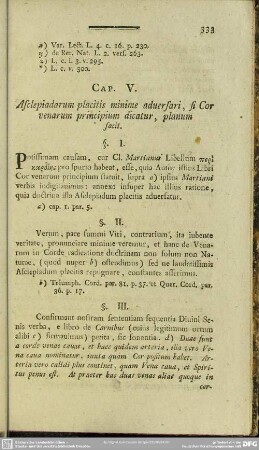 333
a) Var. Lect. L. 4. c. 16. p. 230.
y) de Rer. Nat. L. 2. vers. 263.
z) L. c. l. 3. v. 295.
*) L. c. v. 300.
CAP. V.
Asclepiadarum placitis minime aduersari, si Cor
venarum principium dicatur, planum
facit.
§. I.
Potissimam causam, cur Cl. Martianus Libellum περὶ
καρδίης pro spurio habeat, esse, quia Autor istius Libri
Cor venarum principium statuit, supra a) ipsius Martiani
verbis indigitauimus: annexa insuper hac illius ratione,
quia doctrina ista Asclepiadum placitis aduersatur.
a) cap. 1. par. 5.
§. II.
Verum, pace summi Viri, contrarium, ita iubente
veritate, pronunciare minime veremur, et hanc de Venarum
in Corde radicatione doctrinam non solum non
Naturae (quod nuper b) ostendimus) sed ne laudatissimis
Asclepiadum placitis repugnare, constantes asserimus.
b) Triumph. Cord. par. 81. p. 37. et Quer. Cord. par.
36. p. 17.
§. III.
Confirmant nostram sententiam sequentia Diuini Senis
verba, e libro de Carnibus (cuius legitimum ortum
alibi c) firmauimus) petita, sic sonantia. d) Duae sunt
a corde venae cauae, et huic quidem arteria, illi vero Vena
caua nominatur, iuxta quam Cor positum habet. Arteria
vero calidi plus continet, quam Vena caua, et Spiritus
penus est. At praeter has duae venae aliae quoque in
cor-